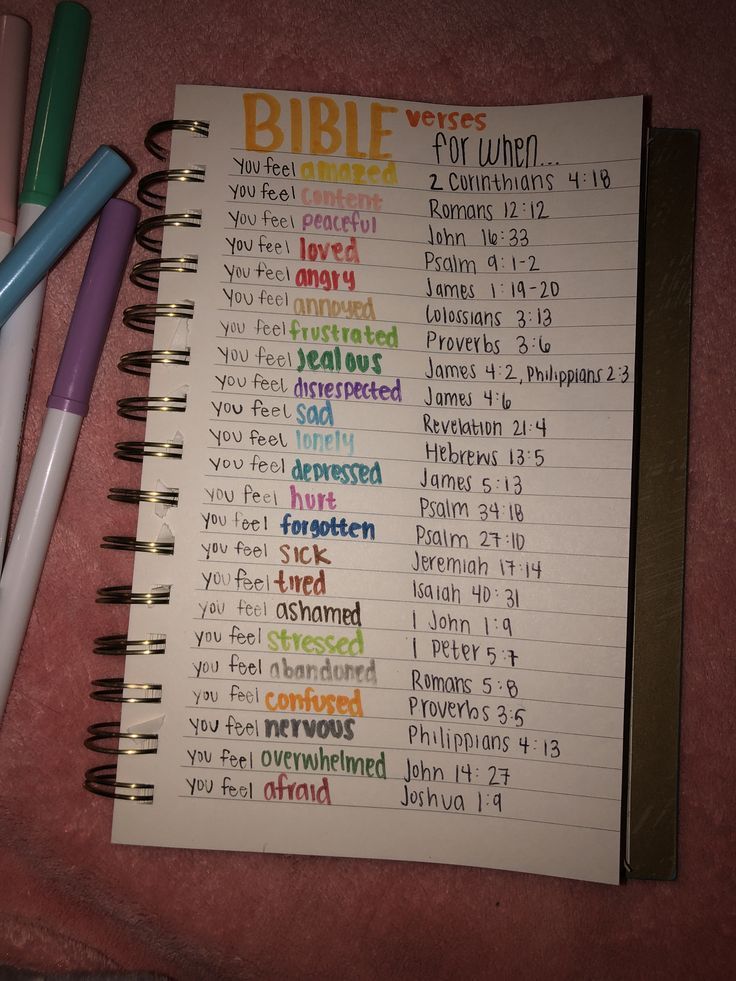 BIBLE verses
for when...
you feel amazed 2 Corinthians 4:18
you feel content Romans 12:12
you feel peaceful John 16:33
you feel loved Psalm 9:1-2
you feel angry James 1:19-20
you feel annoyed Colossians 3:13
you feel frustrated Proverbs 3:6
you feel jealous James 4:2, Philippians 2:3
you feel disrespected James 4:6
you feel sad Revelation 21:4
you feel lonely Hebrews 13:5
you feel depressed James 5:13
you feel hurt Psalm 34:18
you feel forgotten Psalm 27:10
you feel sick Jeremiah 17:14
you feel tired Isaiah 40:31
you feel ashamed 1 John 1:9
you feel stressed 1 Peter 5:7
you feel abandoned Romans 5:8
you feel confused Proverbs 3:5
you feel nervous Philippians 4:13
you feel overwhelmed John 14:27
you feel afraid Joshua 1:9